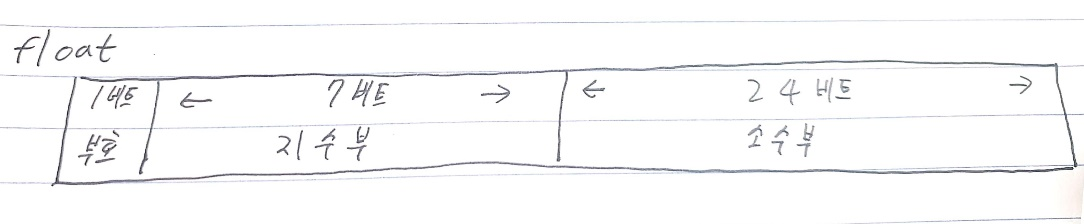 float
1비트 ← 7비트 → ← 24비트 →
부호 지수부 소수부